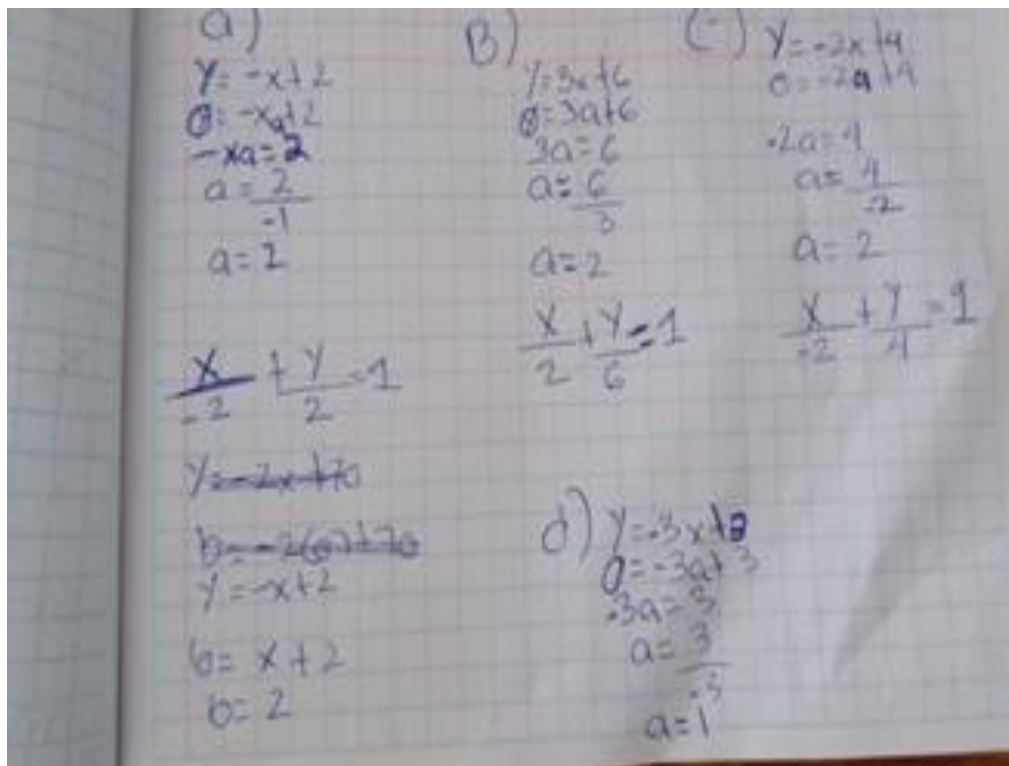 a)
y = -x + 2
0 = -xa + 2
-xa = 2
a = 2/-1
a = 2
x/-2 + y/2 = 1
y = -2x + 70
b = -2(0) + 70
y = -x + 2
b = x + 2
b = 2
B)
y = 3x + 6
0 = 3a + 6
3a = 6
a = 6/3
a = 2
x/2 + y/6 = 1
C) y = -2x + 4
0 = -2a + 4
-2a = 4
a = 4/-2
a = 2
x/-2 + y/4 = 1
d) y = -3x + 3
0 = -3a + 3
-3a = 3
a = 3/-3
a = 1